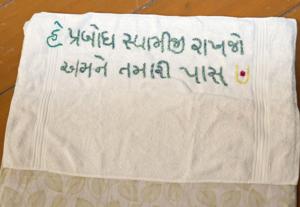 હે પ્રબોધ સ્વામીજી રાખજો
અમને તમારી પાસ